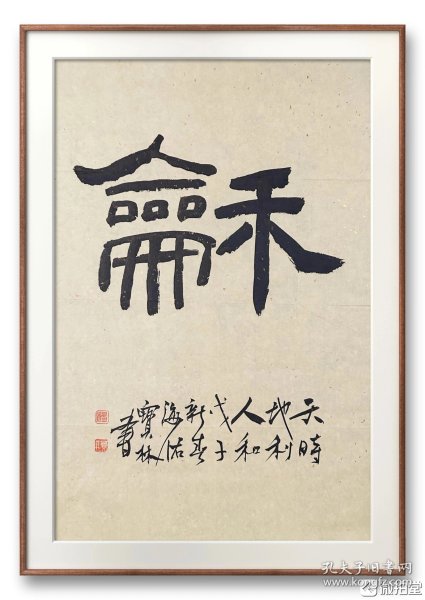 龢
天時
地利
人和
戊子
新春
海
寶林
書
孔夫子旧书网
www.kongfz.com
微拍堂